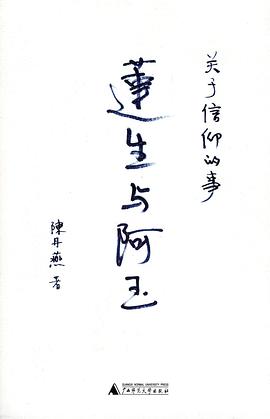 关于信仰的事
蓮生与阿玉
陳丹燕 著
GUANGXI NORMAL UNIVERSITY PRESS
广西师范大学出版社